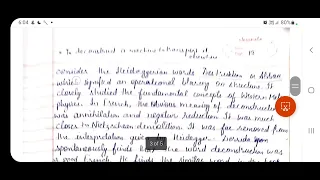 6:04
80%
Derrida
consider the Heideggerian words Destruktion or Abbau,
which signified an operational bearing on structure. It
closely studied the fundamental concepts of Western Meta
physics. In French, the obvious meaning of deconstruction
was annihilation and negative reduction. It was much
closer to Nietzschean demolition. It was far removed from
the interpretation given by Heidegger. Derrida upon
spontaneously finds that the word deconstruction was
a good french. He finds the similar word in
3 of 5